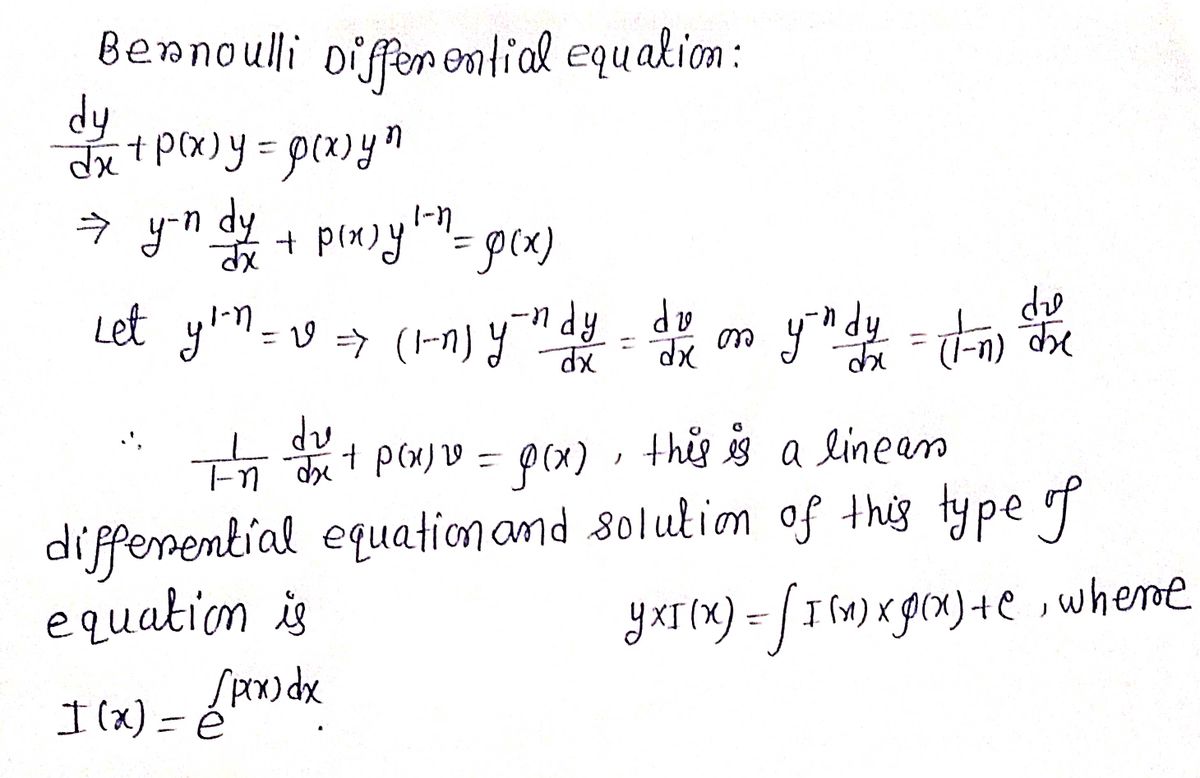 Bernoulli Differential equation:
dy/dx + p(x) y = φ(x) y^n
⇒ y^-n dy/dx + p(x) y^1-n = φ(x)
Let y^1-n = v ⇒ (1-n) y^-n dy/dx = dv/dx or y^-n dy/dx = 1/(1-n) dv/dx
∴ 1/1-n dv/dx + p(x) v = φ(x), this is a linear
differential equation and solution of this type of
equation is y×I(x) = ∫I(x)×φ(x)+c, where
I(x) = e^∫p(x)dx.